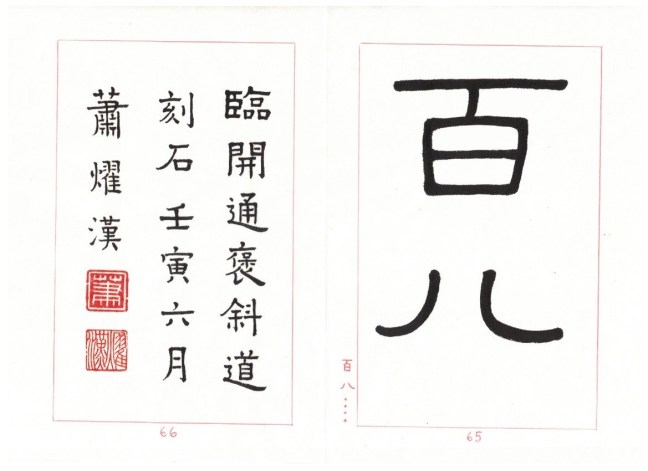 百八
百八
65
臨開通褒斜道
刻石壬寅六月
蕭燿漢
蕭
燿漢
66